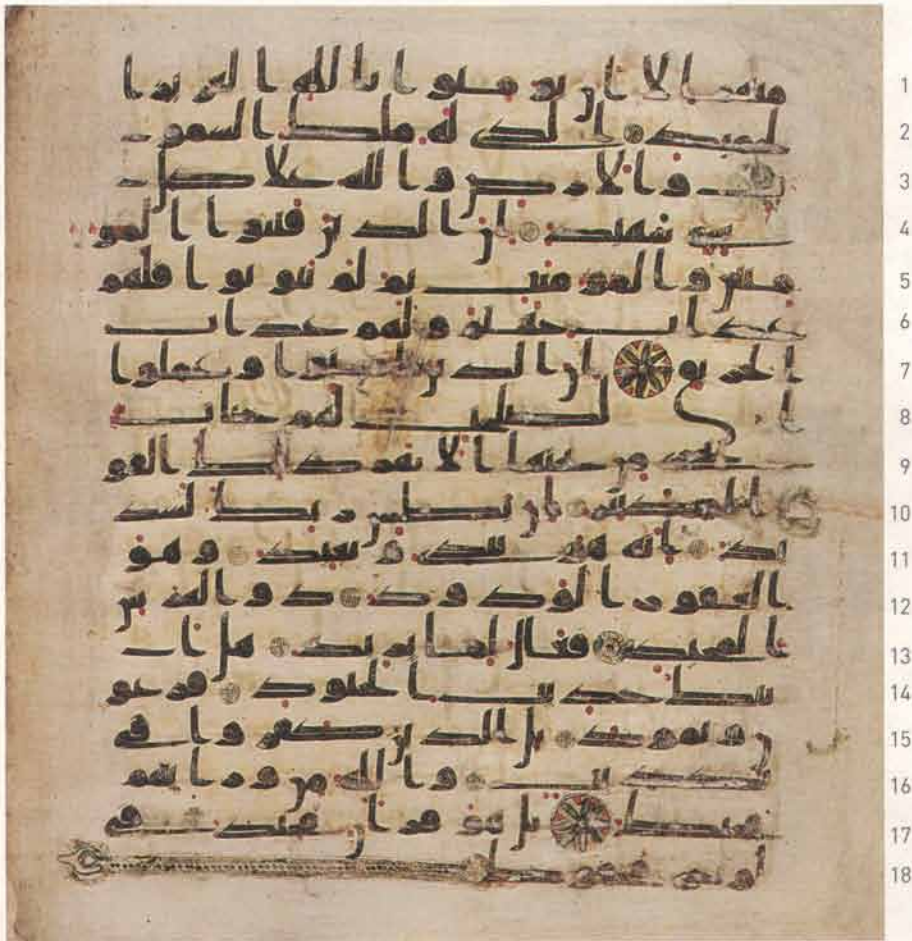 منهم الا ان يومنوا بالله العزيز ا 1
لحميد الذي له ملك السمو 2
ت والارض والله على كل 3
شي شهيد ان الذين فتنوا المو 4
منين والمومنت ثم لم يتوبوا فلهم 5
عذاب جهنم ولهم عذاب 6
الحريق ان الذين امنوا وعملوا 7
ا لصلحت لهم جنت 8
تجري من تحتها الانهر ذلك الفو 9
ز الكبير ان بطش ربك لشد 10
يد انه هو يبدي ويعيد وهو 11
الغفور الودود ذو العرش 12
المجيد فعال لما يريد هل ات 13
يك حديث الجنود فرعو 14
ن وثمود بل الذين كفروا في 15
تكذيب والله من ورائهم 16
محيط بل هو قران مجيد في 17
لوح محفوظ 18